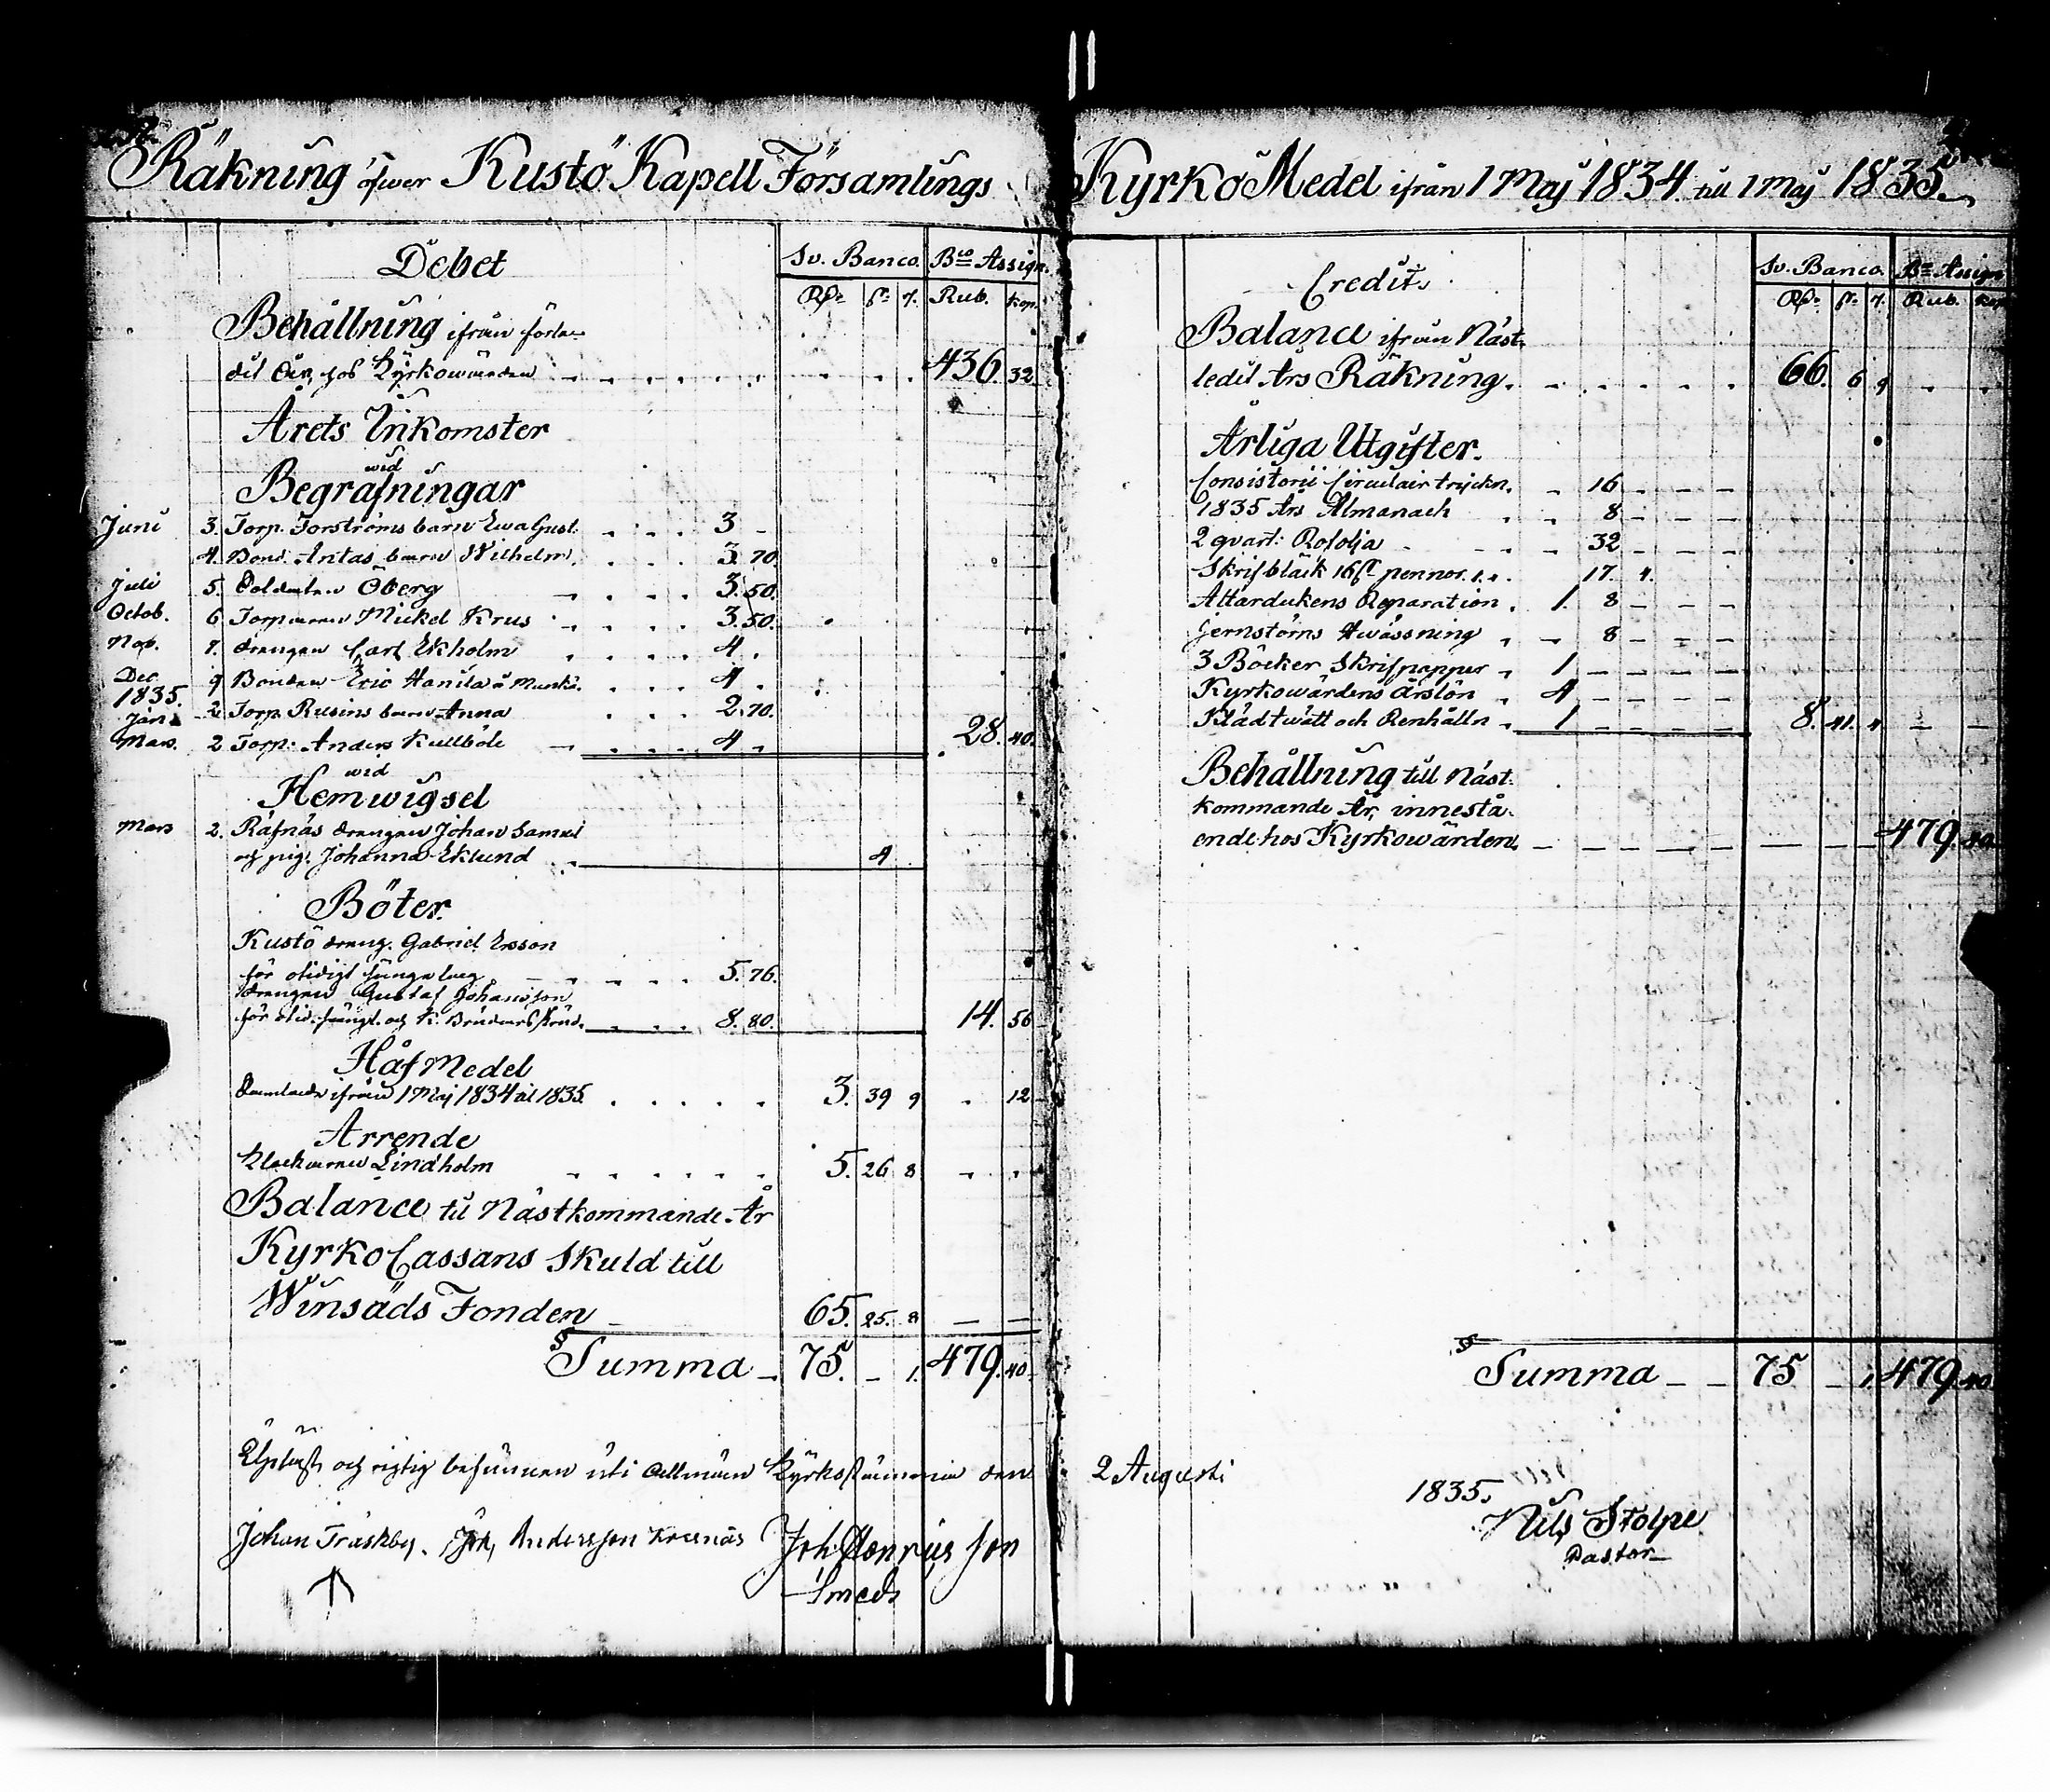 Räkning öfwer Kustö Kapell Församlings KyrkoMedel ifrån 1 Maj 1834. till 1 Maj 1835.
Debet
Sv. Banco. Bco Assign.
Rdr ſk. r. Rub. Kop.
Behållning ifrån förle-
det År, hos Kyrkowärden 436. 32
Årets Inkomster
wid
Begrafningar
Juni 3. Torp. Forströms barn Ewa Gust. 3 -
4. Bond. Antas barn Wilhelm. 3. 70.
Juli 5. Soldaten Öberg 3. 50.
Octob. 6. Torparen Mickel Krus 3. 50.
Nov. 7. drengen Carl Ekholm 4.
Dec. 9 Bonden Eric Hanila å Munki. 4.
1835.
Jan. 2. Torp. Rusins barn Anna 2. 70.
Mars. 2 Torp. Anders Kullböle 4. 28. 40.
wid
Hemwigsel
Mars 2. Räfnäs drengen Johan Samuel
och pig. Johanna Eklund 4
Böter.
Kustö dreng. Gabriel Ersson
för otidigt 5. 76.
drengen Gustaf Johansson
för och K. 8. 80. 14. 56
Håf Medel
Samlade ifrån 1 Maj 1834 til 1835. 3. 39 9 12
Arrende
Klockaren Lindholm 5. 26 8
Balance til Nästkommande År
Kyrko Cassans Skuld till
Winsäds Fonden 65. 25. 8
Summa 75. - 1. 479. 40
Uplast och rigtig befunnen uti Allmän Kyrkostämma den 2 Augusti
1835.
Johan Träskby. Joh, Andersson Krusnäs Joh Henricsson
Smeds
Credit.
Sv. Banco. Bco Assign
Rdr ſk. r. Rub. Kop
Balance ifrån Näst-
ledit Års Räkning. 66. 6 9
Årliga Utgifter.
Consistorii Circulair tryckn. 16
1835 Års Almanach 8
2 quart: Rofolja 32
Skrifbläck 16 ſk pennor. 1. 4. 17. 4.
Altardukens Reparation. 1. 8
Jernstörns Hwässning 8
3 Böcker Skrifpapper 1
Kyrkowärdens årslön 4
Klädtwätt och Renhålln. 1 8. 41. 4
Behållning till Näst-
kommande År, innestå-
ende hos Kyrkowärden. 479. 40
Summa 75 - 1. 479. 40
Nils Stolpe
Pastor